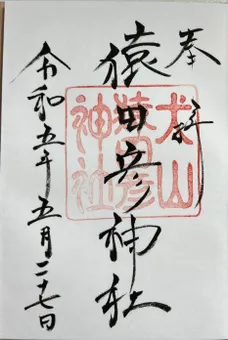 奉拝
犬山
猿田彦
神社
猿田彦神社
令和五年五月二十七日